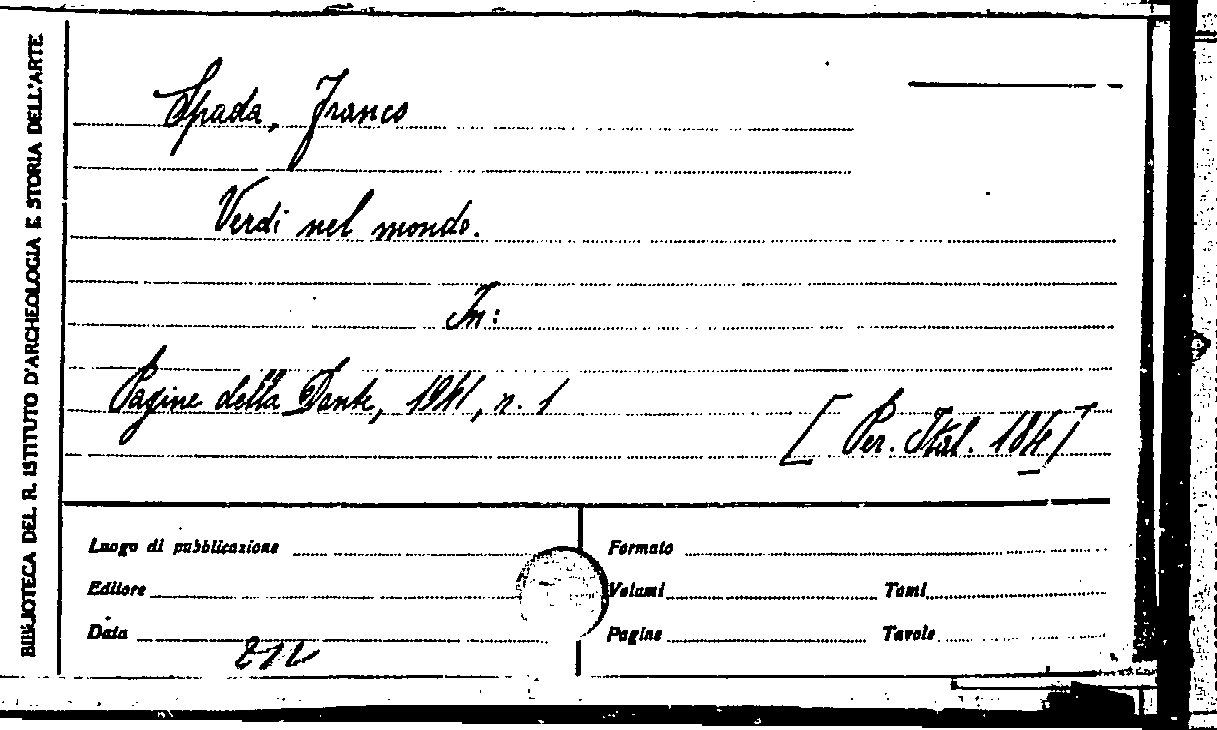 BIBLIOTECA DEL R. ISTITUTO D'ARCHEOLOGIA E STORIA DELL'ARTE
Spada, Franco
Verdi nel mondo.
In:
Pagine della Dante, 1941, n. 1
[Per. Ital. 184]
Luogo di pubblicazione
Editore
Data
Formato
Volumi Tomi
Pagine Tavole